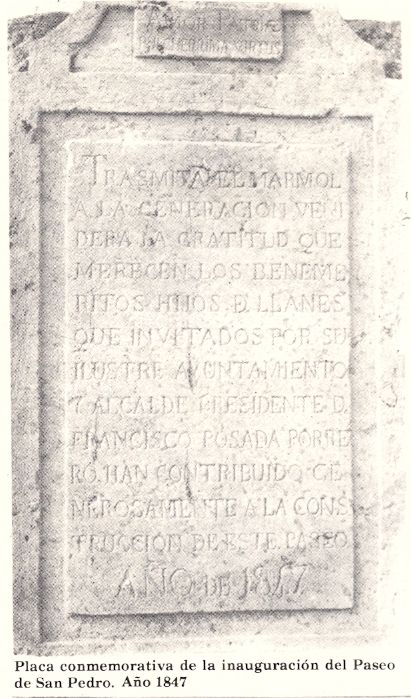 AMOR PATRIÆ
TRASMITA EL MARMOL
A LA GENERACION VENI
DERA LA GRATITUD QUE
MERECEN LOS BENEME
RITOS HIJOS D LLANES
QUE INVITADOS POR SU
ILUSTRE AYUNTAMIENTO
Y ALCALDE PRESIDENTE D.
FRANCISCO POSADA PORTE
RO, HAN CONTRIBUIDO GE
NEROSAMENTE A LA CONS
TRUCCION DE ESTE PASEO
AÑO DE 1847
Placa conmemorativa de la inauguración del Paseo
de San Pedro. Año 1847